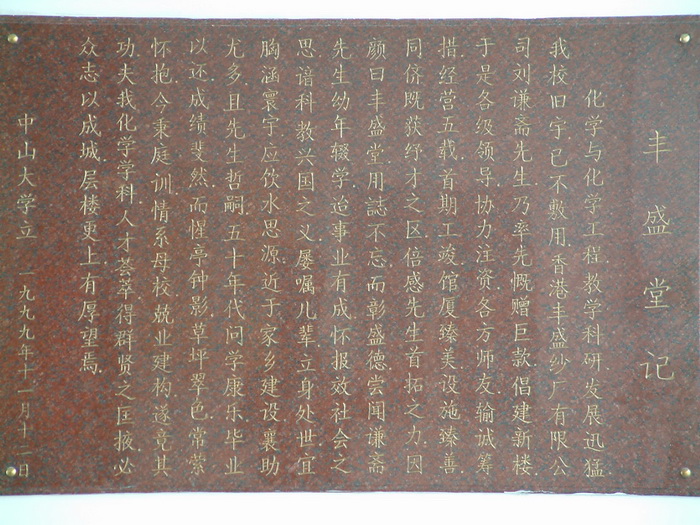 丰盛堂记
化学与化学工程教学科研发展迅猛
我校旧宇已不敷用香港丰盛纱厂有限公
司刘谦斋先生乃率先慨赠巨款倡建新楼
于是各级领导协力注资各方师友输诚筹
措经营五载首期工竣馆厦臻美设施臻善
同侪既获纾才之区倍感先生首拓之力因
颜曰丰盛堂用誌不忘而彰盛德尝闻谦斋
先生幼年辍学迨事业有成怀报效社会之
思谙科教兴国之义屡嘱儿辈立身处世宜
胸涵寰宇应饮水思源近于家乡建设襄助
尤多且先生哲嗣五十年代问学康乐毕业
以还成绩斐然而惺亭钟影草坪翠色常萦
怀抱今秉庭训情系母校兢业建构遂竟其
功夫我化学学科人才荟萃得群贤之匡掖必
众志以成城层楼更上有厚望焉
中山大学立 一九九九年十一月十二日